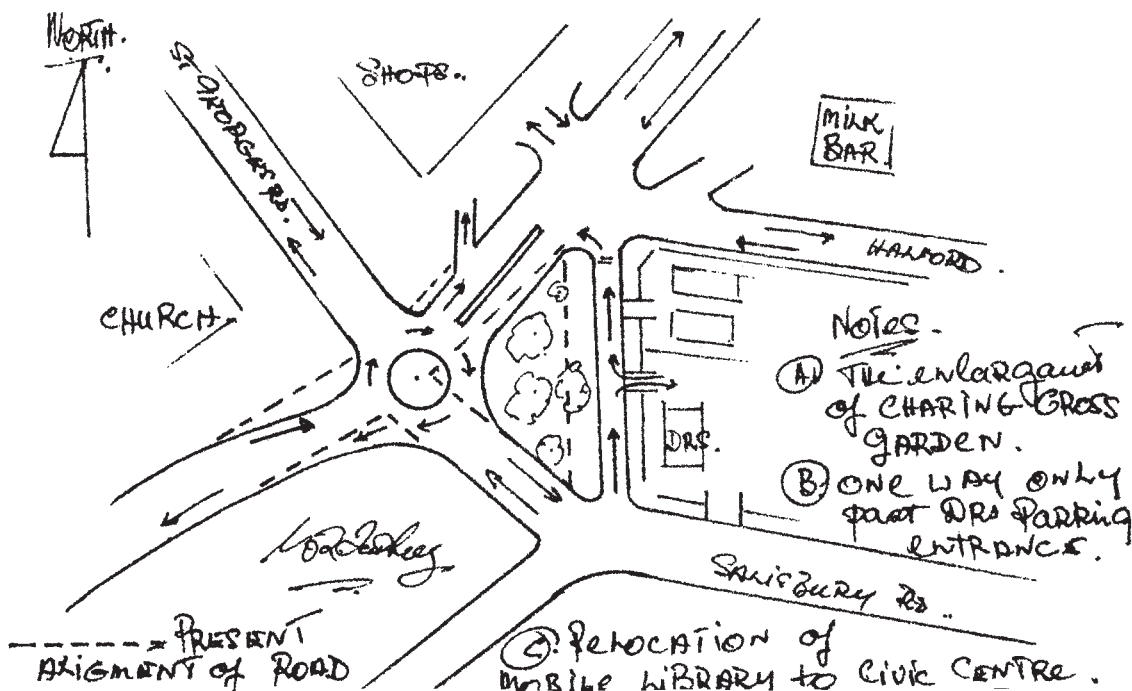 NORTH.
ST GEORGES RD.
SHOPS..
MILK
BAR.
HALFORD.
CHURCH.
NOTES.
A. THE enlargament
of CHARING CROSS
GARDEN.
B. ONE WAY ONLY
past DRS Parking
ENTRANCE.
DRS.
SALISBURY Rd..
- - - - - = PRESENT
ALIGMENT of ROAD
C. RELOCATION of
MOBILE LIBRARY to CIVIC CENTRE.